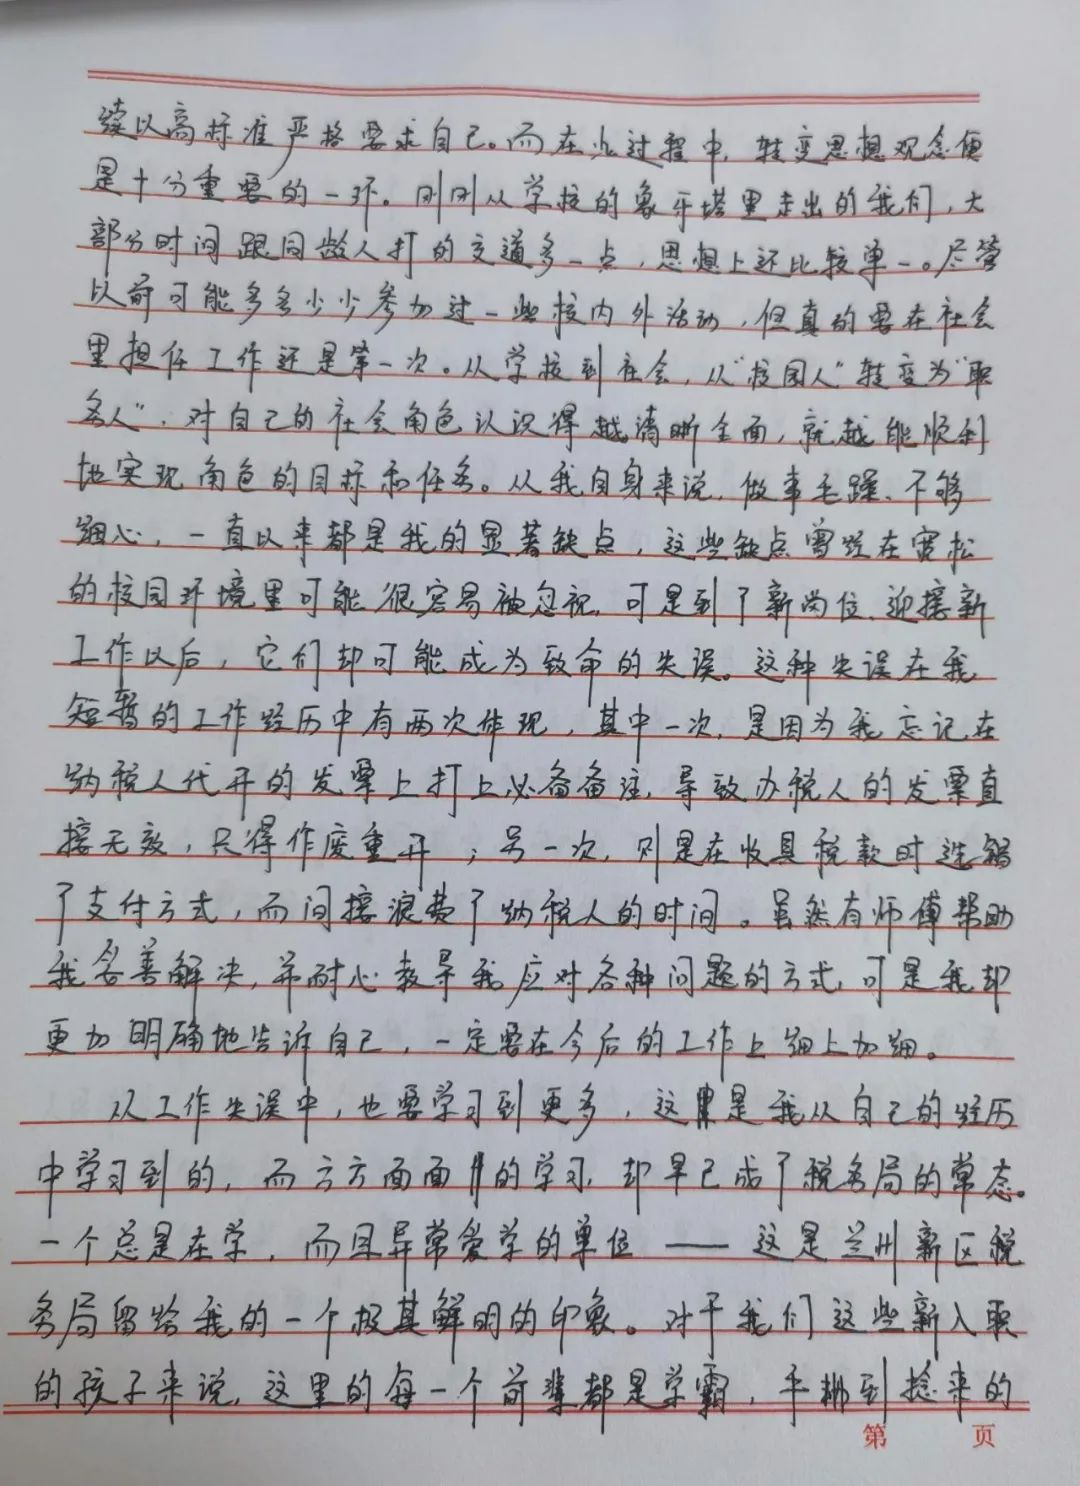 续以高标准严格要求自己。而在此过程中，转变思想观念便
是十分重要的一环。刚刚从学校的象牙塔里走出的我们，大
部分时间跟同龄人打的交道多一点，思想上还比较单一。尽管
以前可能多多少少参加过一些校内外活动，但真的要在社会
里担任工作还是第一次。从学校到社会，从“校园人”转变为“职
务人”，对自己的社会角色认识得越清晰全面，就越能顺利
地实现角色的目标和任务。从我自身来说，做事毛躁、不够
细心，一直以来都是我的显著缺点，这些缺点曾经在宽松
的校园环境里可能很容易被忽视，可是到了新岗位、迎接新
工作以后，它们却可能成为致命的失误。这种失误在我
短暂的工作经历中有两次体现，其中一次，是因为我忘记在
纳税人代开的发票上打上必备备注，导致办税人的发票直
接无效，只得作废重开；另一次，则是在收具税款时选错
了支付方式，而间接浪费了纳税人的时间。虽然有师傅帮助
我妥善解决，并耐心教导我应对各种问题的方式，可是我却
更加明确地告诉自己，一定要在今后的工作上细上加细。
从工作失误中，也要学习到更多，这是我从自己的经历
中学习到的，而方方面面的学习，却早已成了税务局的常态。
一个总是在学，而且异常爱学的单位——这是兰州新区税
务局留给我的一个极其鲜明的印象。对于我们这些新入职
的孩子来说，这里的每一个前辈都是学霸，手拥到捻来的
第 页